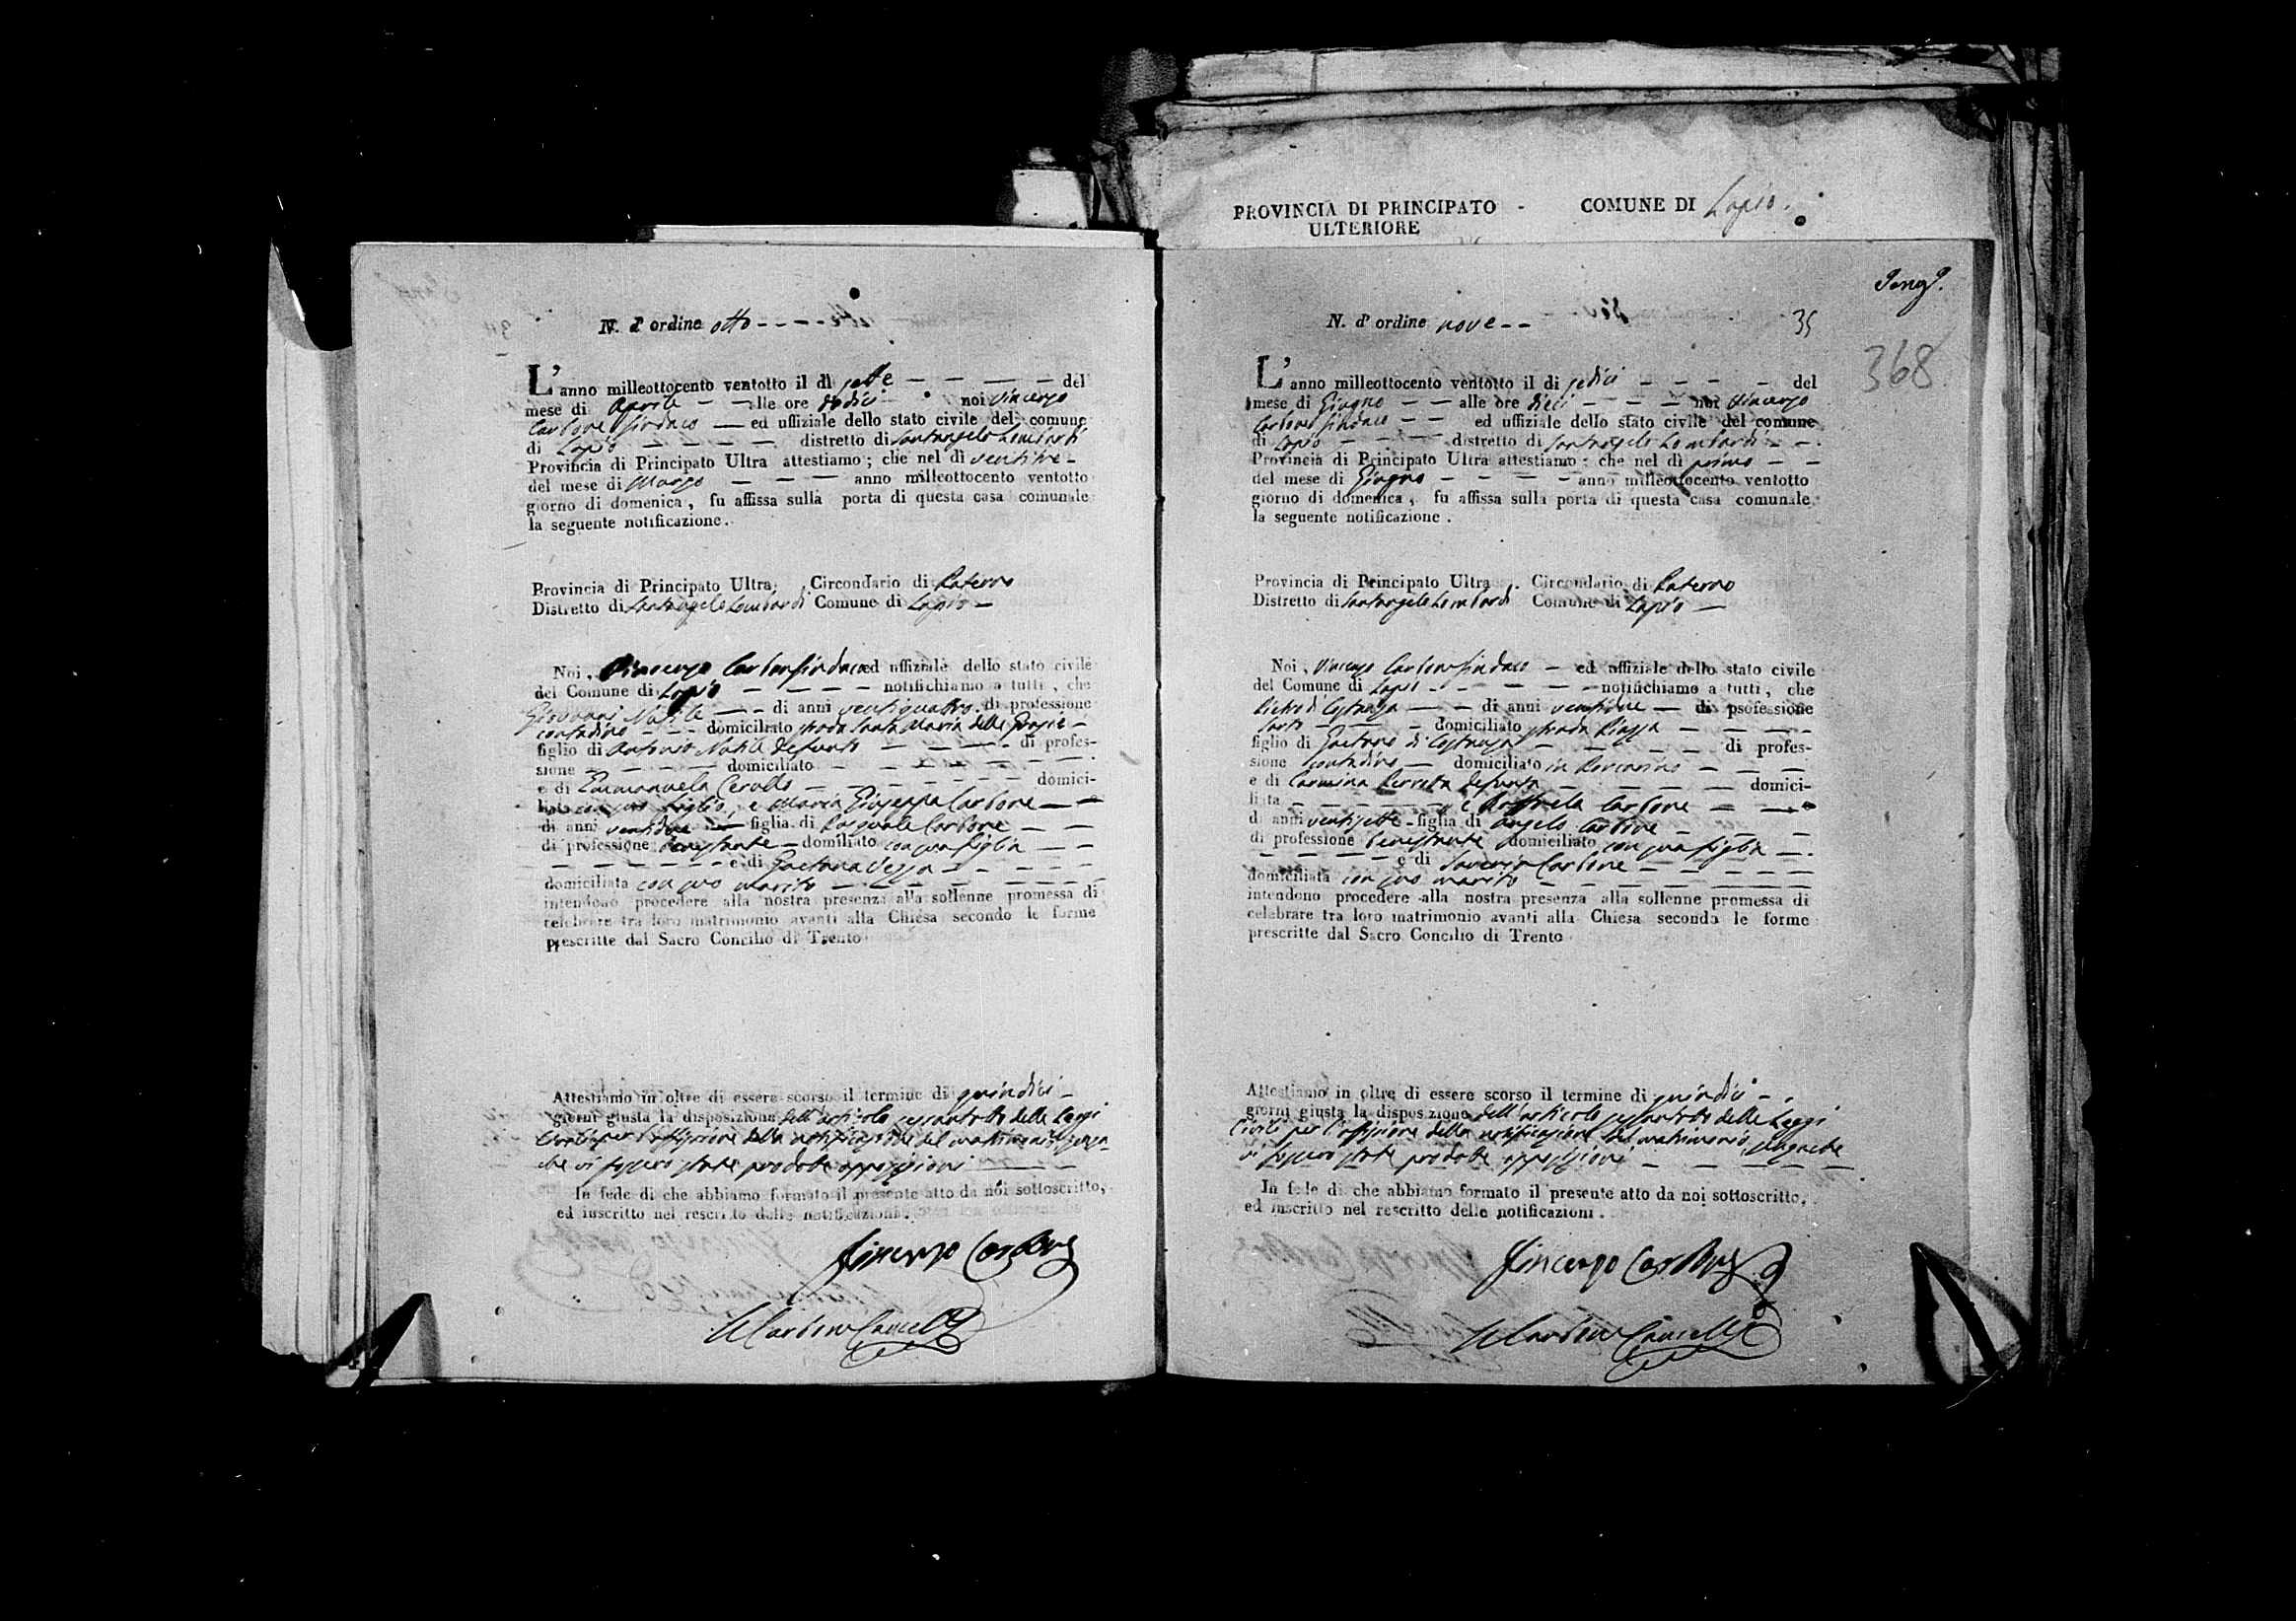 N. d' ordine otto
L' anno milleottocento ventotto il di sette del
mese di Aprile alle ore dodici noi Vincenzo
Carbone Sindaco ed uffiziale dello stato civile del comune
di Lapio distretto di Santangelo Lombardi
Provincia di Principato Ultra attestiamo; che nel di ventitre
del mese di Marzo anno milleottocento ventotto
giorno di domenica, fu affissa sulla porta di questa casa comunale
la seguente notificazione.
Provincia di Principato Ultra Circondario di Paterno
Distretto di Santangelo Lombardi Comune di Lapio
Noi, Vincenzo Carbone Sindaco ed uffiziale dello stato civile
del Comune di Lapio notifichiamo a tutti, che
Giovanni Natile di anni ventiquattro di professione
contadino domiciliato strada Santa Maria delle Grazie
figlio di Antonio Natile defunto di profes-
sione domiciliato
e di Emmanuela Cerullo domici-
liata con suo figlio, e Maria Giuseppa Carbone
di anni ventidue figlia di Pasquale Carbone
di professione benestante domiliato con sua figlia
e di Gaetana
domiciliata con suo marito
intendono procedere alla nostra presenza alla sollenne promessa di
celebrare tra loro matrimonio avanti alla Chiesa secondo le forme
prescritte dal Sacro Concilio di Trento
Attestiamo in oltre di essere scorso il termine di quindici
giorni giusta la disposizione dell'articolo sessantotto delle Leggi
Civili per l'affissione della notificazione del matrimonio, senza
che vi fossero state prodotte opposizioni
In fede di che abbiamo formato il presente atto da noi sottoscritto,
ed inscritto nel rescritto delle notificazioni.
Vincenzo Carbone
Carbone Cancell
PROVINCIA DI PRINCIPATO - COMUNE DI Lapio.
ULTERIORE
N. d' ordine nove
35
368
L' anno milleottocento ventotto il di sedici del
mese di Giugno alle ore dieci noi Vincenzo
Carbone Sindaco ed uffiziale dello stato civile del comune
di Lapio distretto di Santangelo Lombardi
Provincia di Principato Ultra attestiamo; che nel di primo
del mese di Giugno anno milleottocento ventotto
giorno di domenica, fu affissa sulla porta di questa casa comunale
la seguente notificazione.
Provincia di Principato Ultra. Circondario di Paterno
Distretto di Santangelo Lombardi Comune di Lapio
Noi, Vincenzo Carbone Sindaco ed uffiziale dello stato civile
del Comune di Lapio notifichiamo a tutti, che
Pietro di Costanza di anni ventidue di psofessione
sarto domiciliato strada Piazza
figlio di Gaetano di Costanza di profes-
sione contadino domiciliato in
e di Carmina Perrotta defunta domici-
liata e Raffaela Carbone
di anni ventisette figlia di Angelo Carbone
di professione benestante domiciliato con sua figlia
e di Saveria Carbone
domiciliata con suo marito
intendono procedere alla nostra presenza alla sollenne promessa di
celebrare tra loro matrimonio avanti alla Chiesa secondo le forme
prescritte dal Sacro Concilio di Trento
Attestiamo in oltre di essere scorso il termine di quindici
giorni giusta la disposizione dell'articolo sessantotto delle Leggi
Civili per l'affissione della notificazione del matrimonio, senza che
vi fossero state prodotte opposizioni
In fede di che abbiamo formato il presente atto da noi sottoscritto,
ed inscritto nel rescritto delle notificazioni.
Vincenzo Carbone
Carbone Cancell